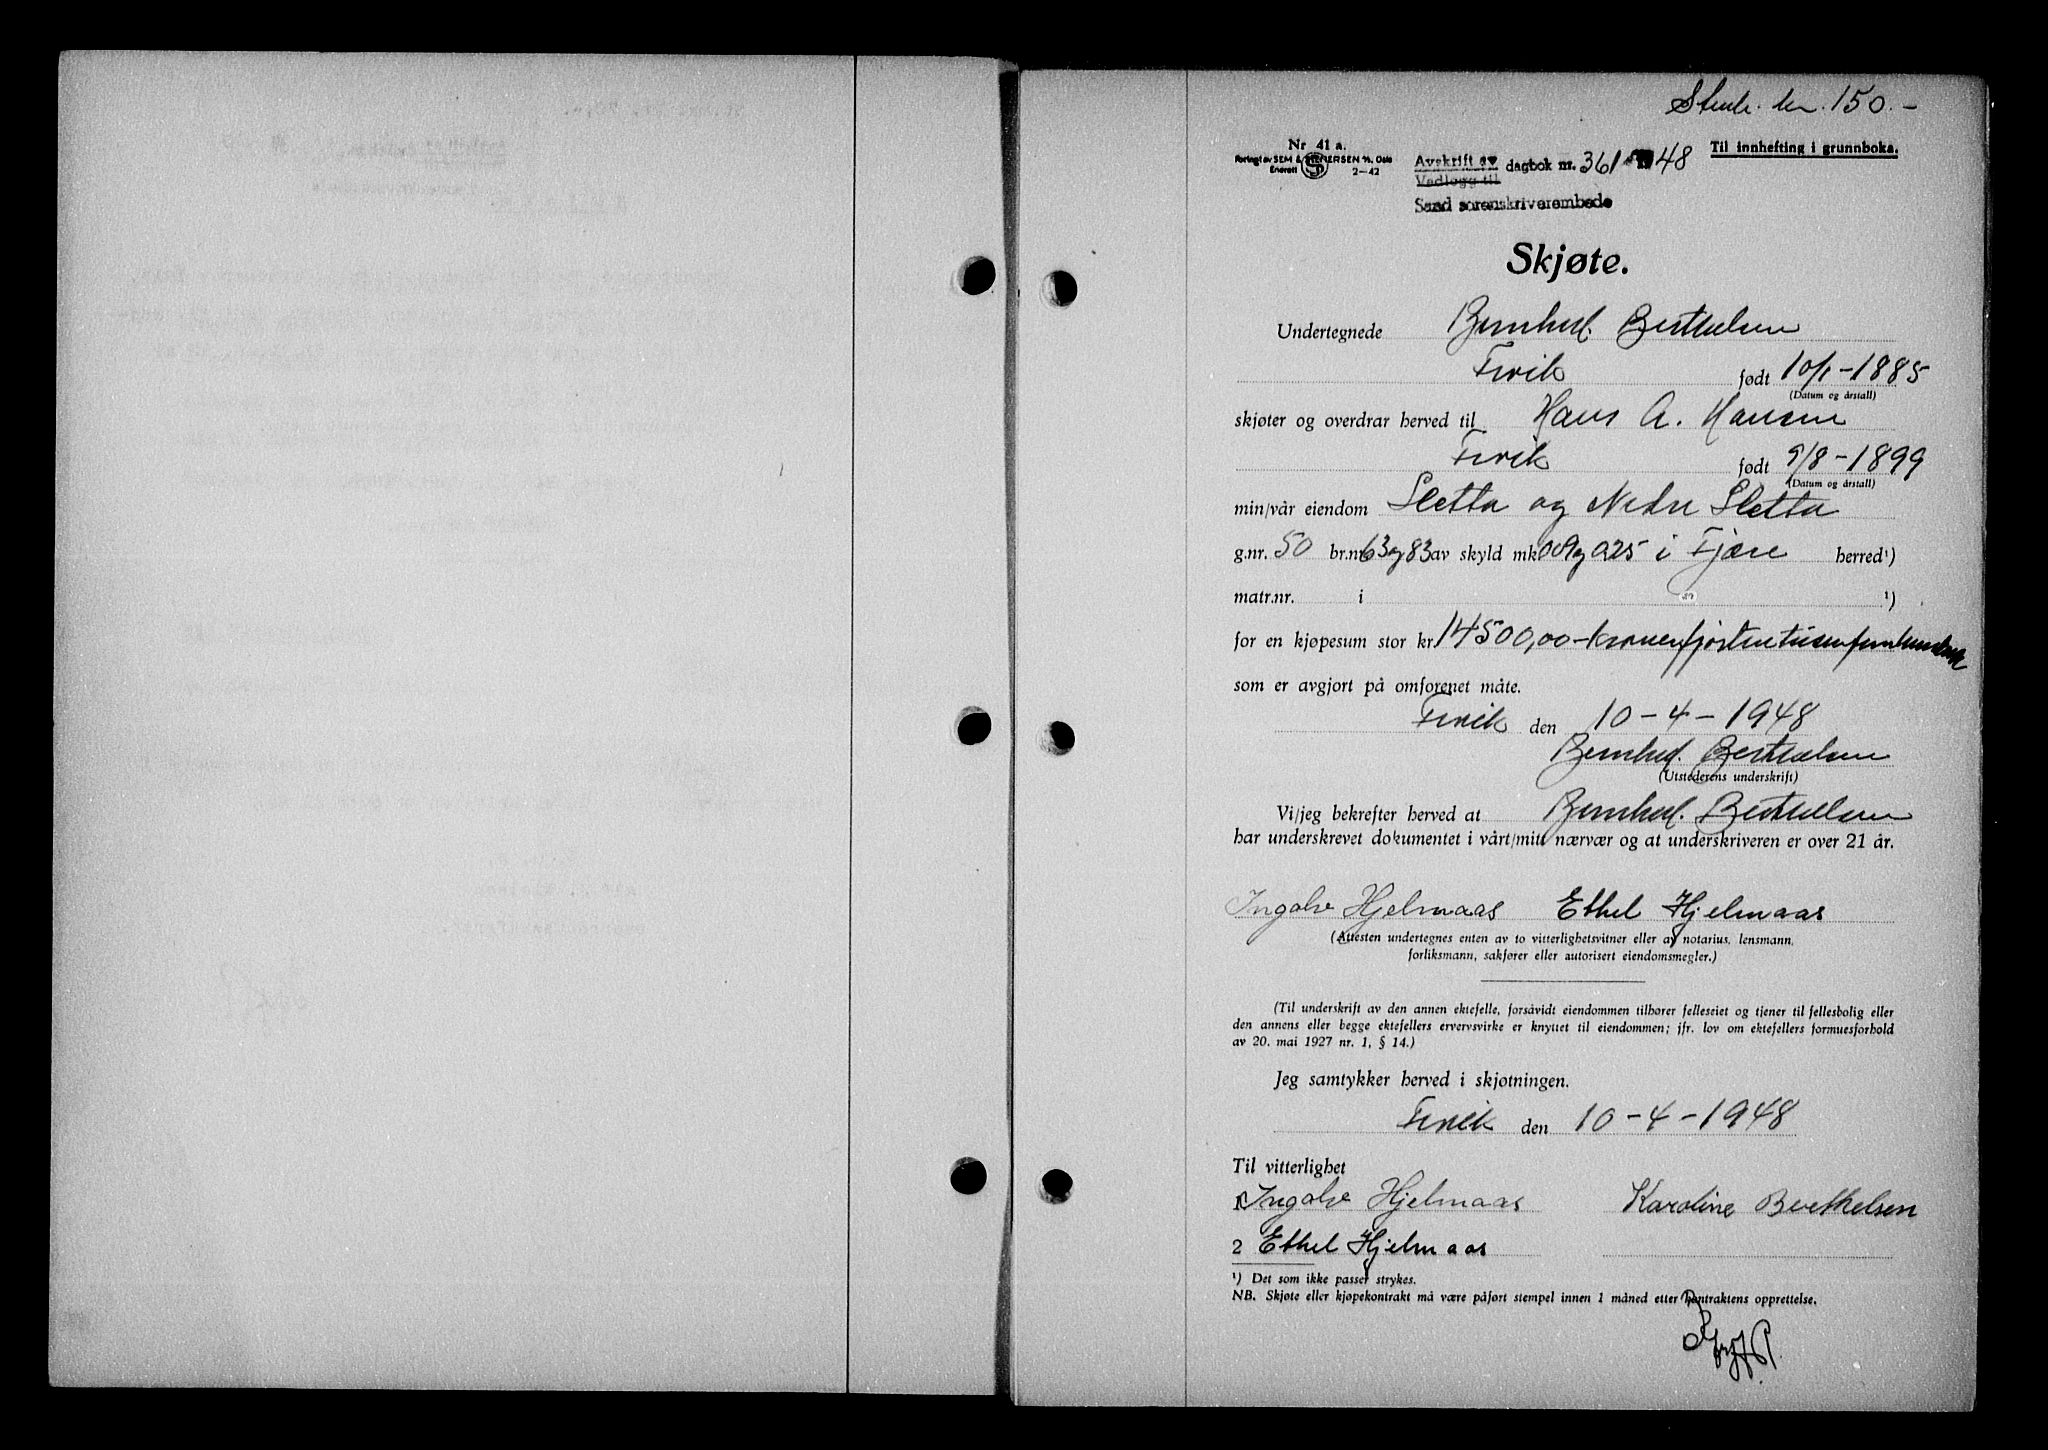 Stmk. kr. 150.-
Nr 41 a.
Forlagt av SEM & STENERSEN A/S, Oslo
Enerett 2-42
Avskrift av
Vedlegg til
dagbok nr. 361 1948
Sand sorenskriverembede
Til innhefting i grunnboka.
Skjøte.
Undertegnede Bernhard Berthelsen
Fevik født 10/1-1885
(Datum og årstall)
skjøter og overdrar herved til Hans A. Hansen
Fevik født 9/8-1899
(Datum og årstall)
min/vår eiendom Sletta og Nedre Sletta
g.nr. 50 br.nr 63 og 83 av skyld mk 0 09 og 0 25 i Fjære herred ¹)
matr.nr. i ¹)
for en kjøpesum stor kr. 14500,00 - kroner fjortentusenfemhundrede
som er avgjort på omforenet måte.
Fevik den 10-4-1948
Bernhard Berthelsen
(Utstederens underskrift)
Vi/jeg bekrefter herved at Bernhard Berthelsen
har underskrevet dokumentet i vårt/mitt nærvær og at underskriveren er over 21 år.
Ingolv Hjelmaas Ethel Hjelmaas
(Attesten undertegnes enten av to vitterlighetsvitner eller av notarius, lensmann,
forliksmann, sakfører eller autorisert eiendomsmegler.)
(Til underskrift av den annen ektefelle, forsåvidt eiendommen tilhører felleseiet og tjener til fellesbolig eller
den annens eller begge ektefellers ervervsvirke er knyttet til eiendommen; jfr. lov om ektefellers formuesforhold
av 20. mai 1927 nr. 1, § 14.)
Jeg samtykker herved i skjøtningen.
Fevik den 10-4-1948
Til vitterlighet
1 Ingolv Hjelmaas Karoline Berthelsen
2 Ethel Hjelmaas
¹) Det som ikke passer strykes.
NB. Skjøte eller kjøpekontrakt må være påført stempel innen 1 måned etter kontraktens opprettelse.